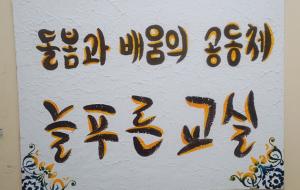 돌봄과 배움의 공동체
늘푸른 교실